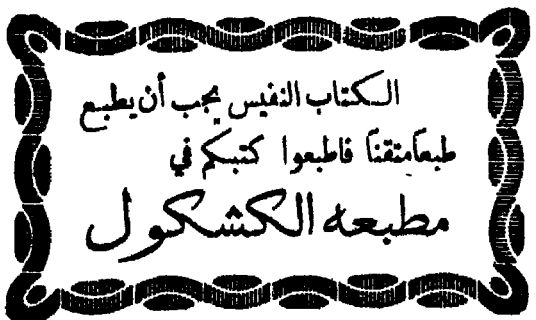 الكتاب النفيس يجب أن يطبع
طبعاً متقناً فاطبعوا كتبكم في
مطبعه الكشكول